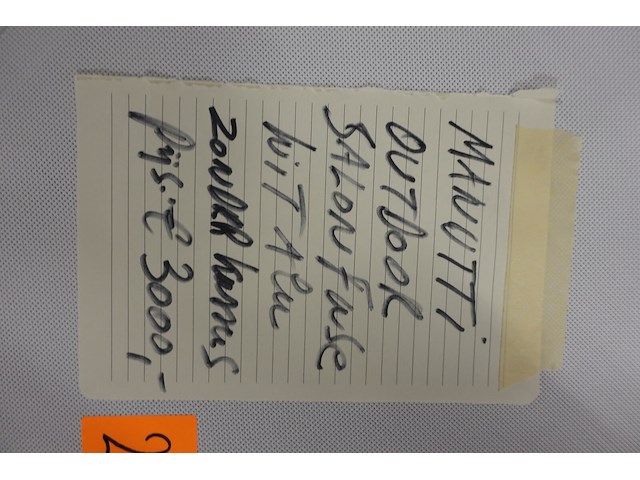 MANUTTI
OUTDOOR
SALON Fuse
WiT Alu
ZONDER kussens
prijs: € 3000,-
2